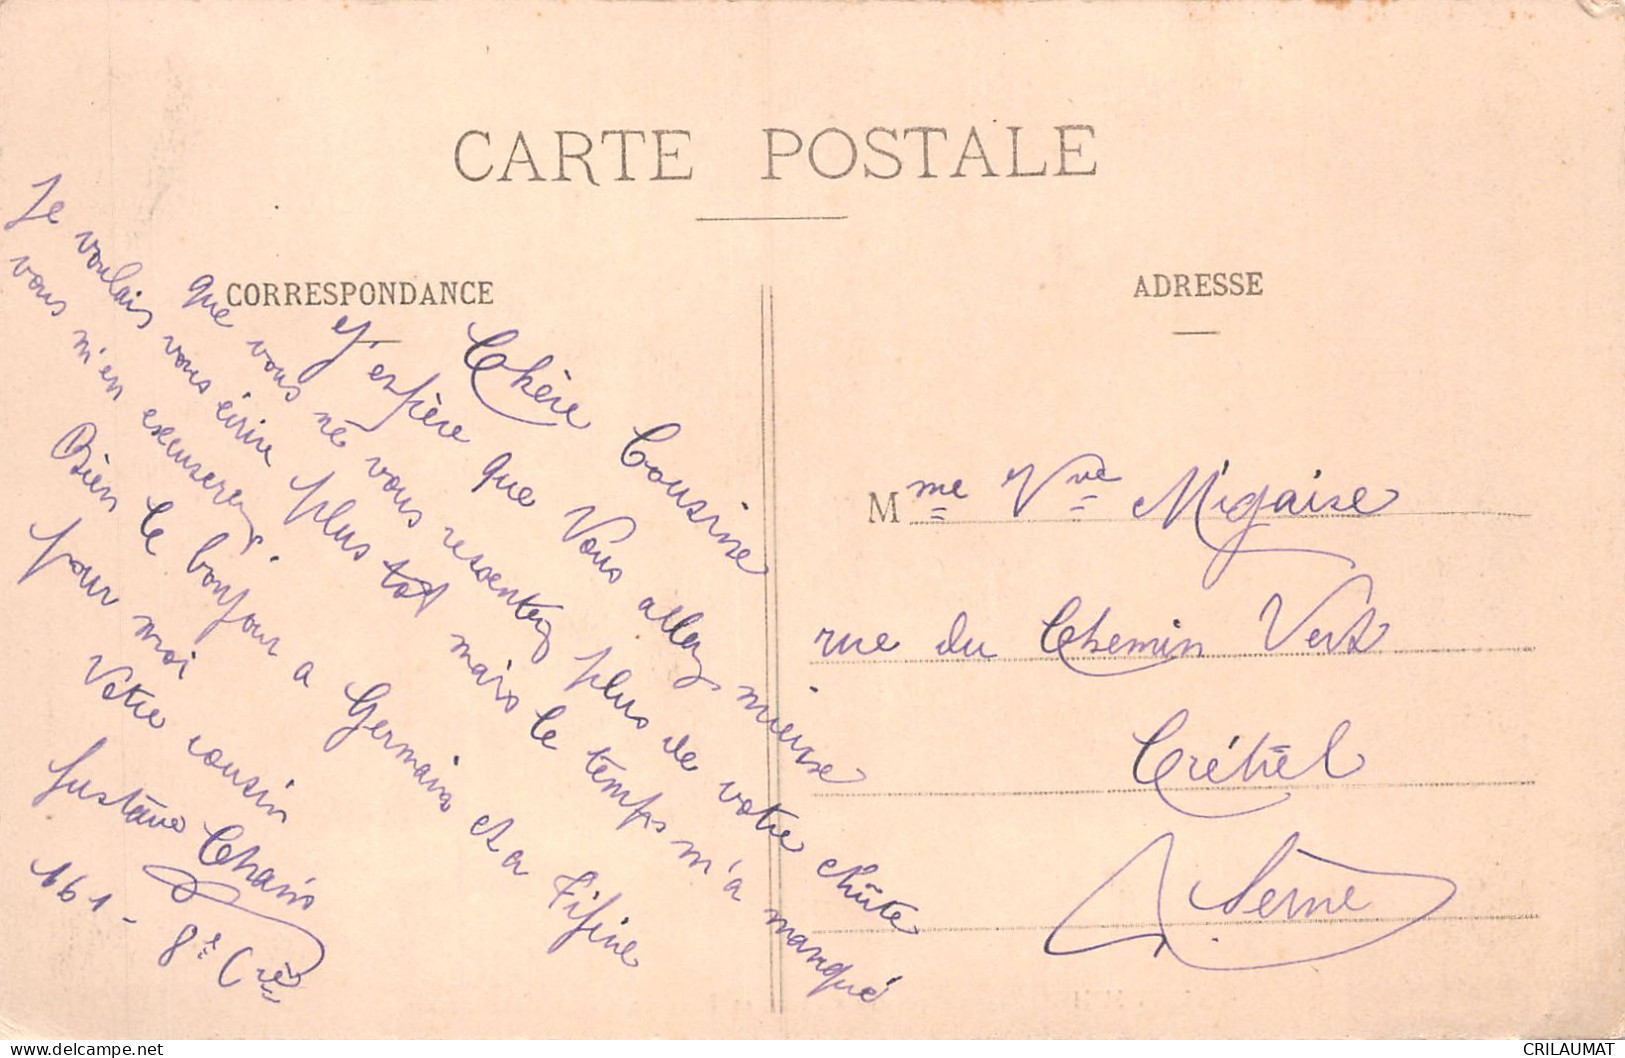 CARTE POSTALE
CORRESPONDANCE
ADRESSE
Chère Cousine
J'espère que Vous allez mieux
que vous ne vous ressentez plus de votre chûte
Je voulais vous écrire plus tot mais le temps m'a manqué
vous m'en excuserez.
Bien le bonjour a Germain et a Fifine
pour moi
Votre cousin
Gustave
161 - 8e Cie
Mme Vve Migaise
rue du Chemin Vert
Créteil
Seine
CRILAUMAT